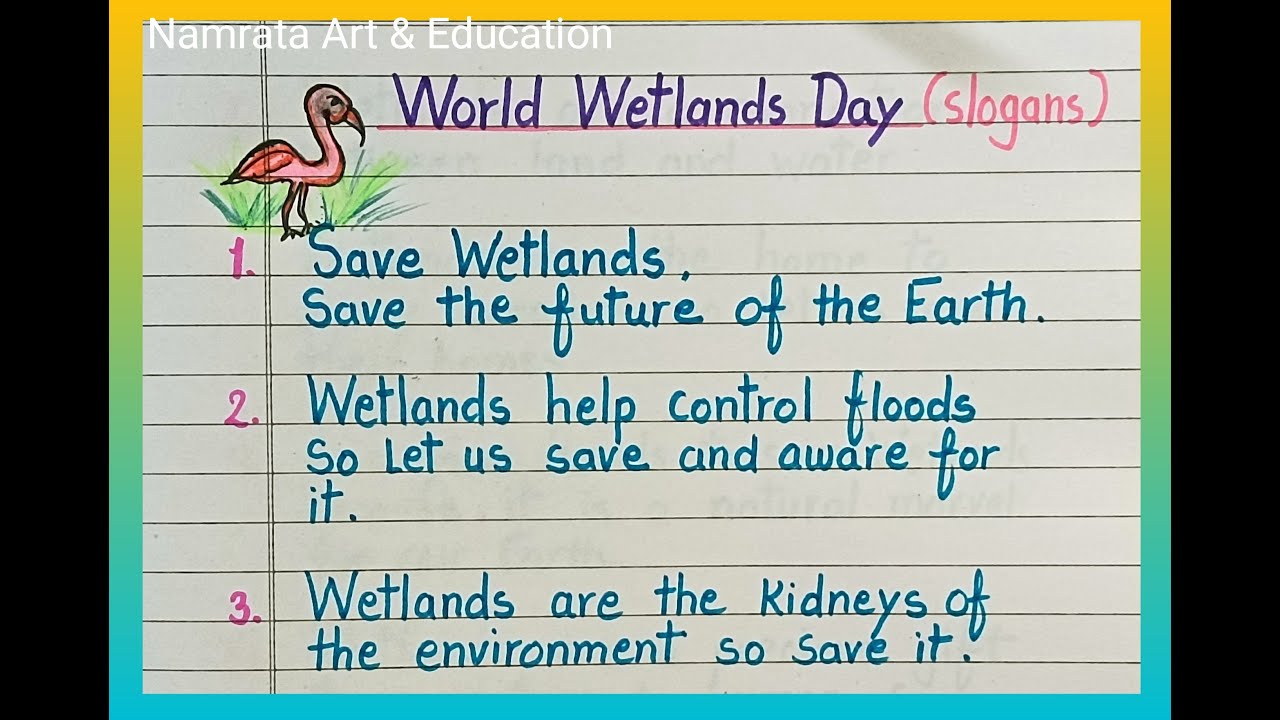 Namrata Art & Education
World Wetlands Day (slogans)
1. Save Wetlands,
Save the future of the Earth.
2. Wetlands help control floods
So Let us save and aware for
it.
3. Wetlands are the Kidneys of
the environment so save it.